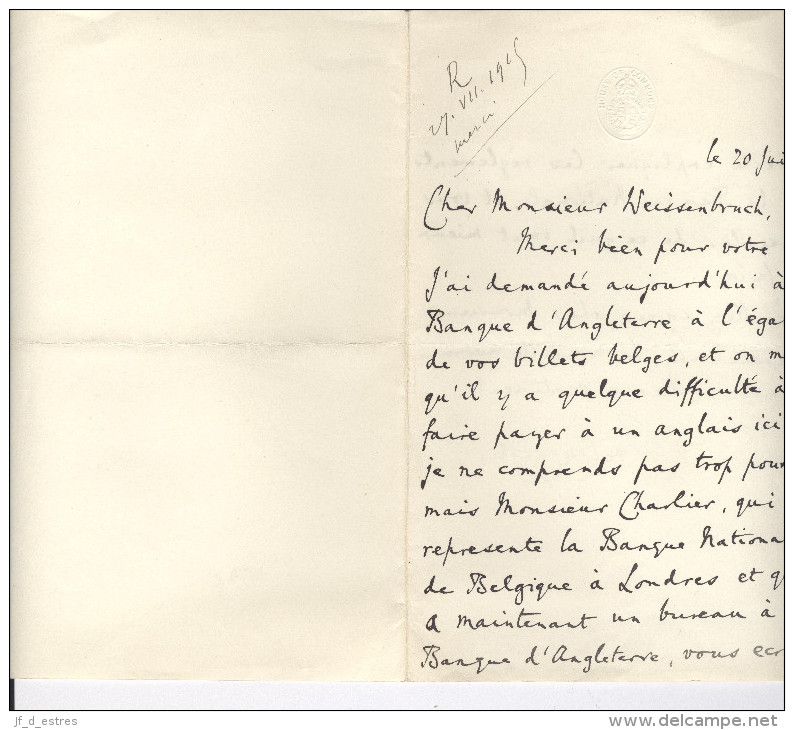 R
27.VII.1915
merci
HOUSE OF COMMONS
le 20 Jui
Cher Monsieur Weissenbruch,
Merci bien pour votre
J'ai demandé aujourd'hui à
Banque d'Angleterre à l'éga
de vos billets belges, et on m
qu'il y a quelque difficulté à
faire payer à un anglais ici
je ne comprends pas trop pour
mais Monsieur Charlier, qui
represente la Banque Nationa
de Belgique à Londres et q
a maintenant un bureau à
Banque d'Angleterre, vous ecr
jf_d_estres
http://www.delcampe.net